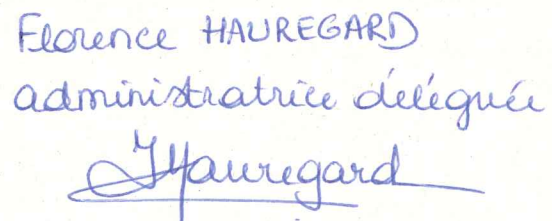 Florence HAUREGARD
administratrice déléguée
FHauregard